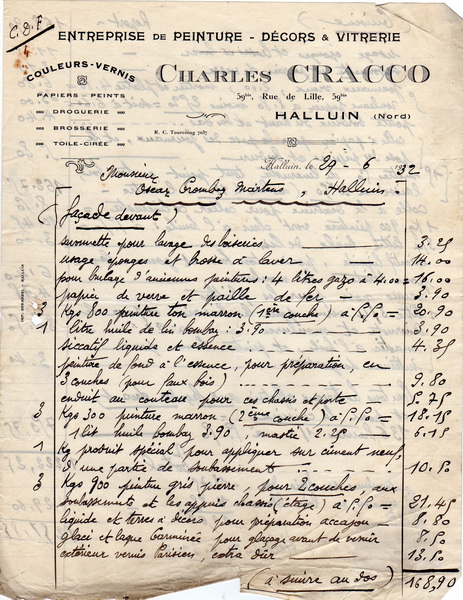 C.D.F
ENTREPRISE DE PEINTURE - DÉCORS & VITRERIE
COULEURS-VERNIS
PAPIERS - PEINTS
DROGUERIE
BROSSERIE
TOILE-CIRÉE
CHARLES CRACCO
59bis, Rue de Lille, 59bis
HALLUIN (Nord)
R. C. Tourcoing 7087
Halluin, le 29-6 1932
Monsieur
Oscar Crombez Martens, Halluin.
(façade devant)
savonnette pour lavage des boiseries 3.25
usage éponges et brosse à laver 14.00
pour brulage d'anciennes peintures : 4 litres gazo à 4.00 = 16.00
papier de verre et paille de fer 3.90
3 Kgs 800 peinture ton marron (1ère couche) à 5.50 = 20.90
1 litre huile de lin bombay : 3.90 3.90
siccatif liquide et essence 4.35
peinture de fond à l'essence, pour préparation, en
3 couches (pour faux bois) 9.80
enduit au couteau pour ces chassis et porte 5.75
3 Kgs 300 peinture marron (2ème couche) à 5.50 = 18.15
1 lit huile bombay 3.90, mastic 2.25 6.15
1 Kg produit spécial pour appliquer sur ciment neuf
d'une partie de soubassement 10.50
3 Kgs 900 peinture gris pierre, pour 2 couches aux
soubassement et les appuis chassis (étage) à 5.50 = 21.45
liquide et terres à décors pour préparation acajou 8.80
glaci et laque Garminée pour glaçage avant de vernir 8.50
extérieur vernis Parisien, extra dur 13.50
(à suivre au dos) 168,90